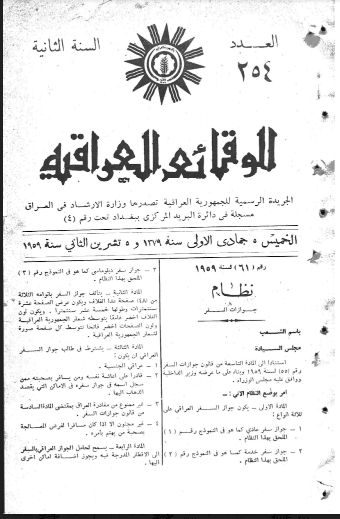 العـــدد
٢٥٤
السنة الثانية
الوقائع العراقية
الجريدة الرسمية للجمهورية العراقية تصدرها وزارة الارشاد فى العراق
مسجلة فى دائرة البريد المركزى ببغداد تحت رقم (٤)
الخميس ٥ جمادى الاولى سنة ١٣٧٩ و ٥ تشرين الثانى سنة ١٩٥٩
رقم (٦١) لسنة ١٩٥٩
نظام
جوازات السفر
باسم الشعب
مجلس السيادة
استنادا الى المادة التاسعة من قانون جوازات السفر
رقم (٥٥) لسنة ١٩٥٩ وبناء على ما عرضه وزير الداخلية
ووافق عليه مجلس الوزراء ٠
امر بوضع النظام الاتي :ـ
المادة الاولى ـ يكون جواز السفر العراقي على
ثلاثة انواع :
١ ـ جواز سفر عادي كما هو فى النموذج رقم (١)
الملحق بهذا النظام ٠
٢ ـ جواز سفر خدمة كما هو فى النموذج رقم (٢)
الملحق بهذا النظام ٠
٣ ـ جواز سفر دبلوماسي كما هو فى النموذج رقم (٣)
الملحق بهذا النظام ٠
المادة الثانية ـ يتألف جواز السفر بانواعه الثلاثة
من (٤٨) صفحة عدا الغلاف ويكون عرض الصفحة عشرة
سنتمترات وطولها خمسة عشر سنتمترا ٠ ويكون لون
الغلاف اخضر غامقا يتوسطه شعار الجمهورية العراقية
ولون الصفحات اخضر فاتحا تتوسط كل صفحة صورة
لشعار الجمهورية العراقية ٠
المادة الثالثة ـ يشترط فى طالب جواز السفر
العراقي ان يكون :
١ ـ عراقي الجنسية ٠
٢ ـ قادرا على اعاشة نفسه ومن يسافر بصحبته ممن
سجل اسمه فى جواز سفره فى الاماكن التي يقصد
الذهاب اليها ٠
٣ ـ غير ممنوع من مغادرة العراق بمقتضى المادة السادسة
من قانون جوازات السفر ٠
٤ ـ غير مجنون الا اذا كان مسافرا لغرض المعالجة
بصحبة من يهتم بأمره ٠
المادة الرابعة ـ يسمح لحامل الجواز العراقي بالسفر
الى الاقطار المدرجة فيه ويجوز اضافة اماكن اخرى
اليها ٠